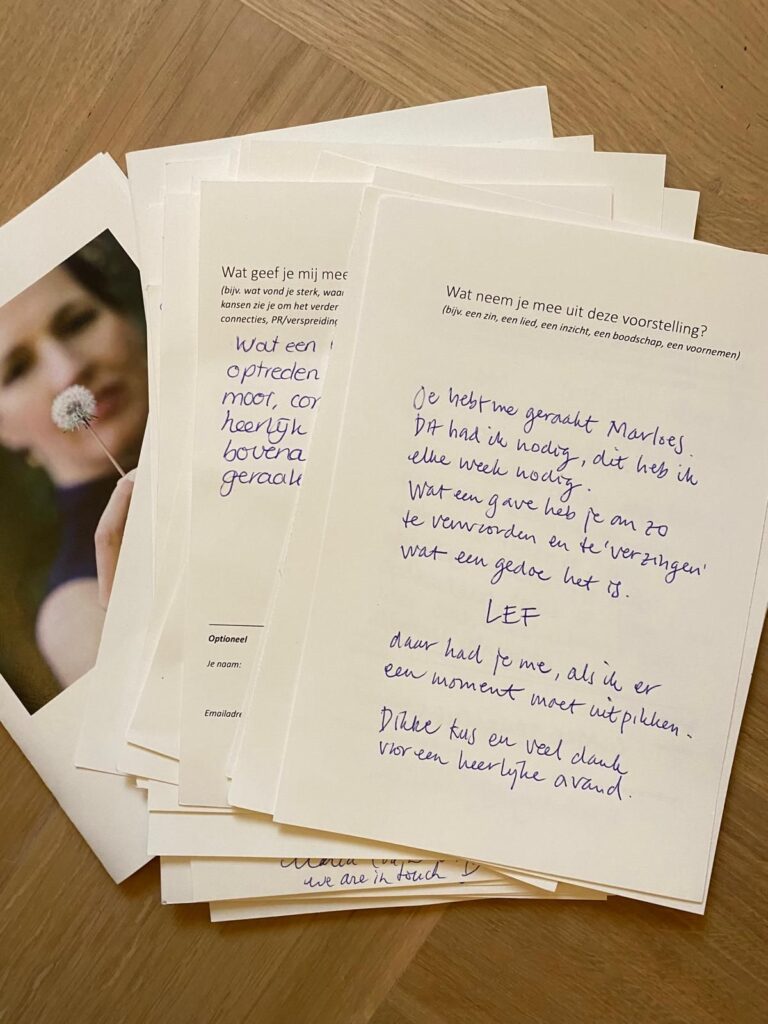 Wat geef je mij mee
(bijv. wat vond je sterk, waar
kansen zie je om het verder
connecties, PR/verspreiding
Wat een
optreden
mooi, cor
heerlijk
bovena
geraak
Optioneel
Je naam:
Emailadre
Wat neem je mee uit deze voorstelling?
(bijv. een zin, een lied, een inzicht, een boodschap, een voornemen)
Je hebt me geraakt Marloes.
DAt had ik nodig, dit heb ik
elke week nodig.
Wat een gave heb je om zo
te verwoorden en te 'verzingen'
wat een gedoe het is.
LEF
daar had je me, als ik er
een moment moet uitpikken.
Dikke kus en veel dank
voor een heerlijke avond.
we are in touch